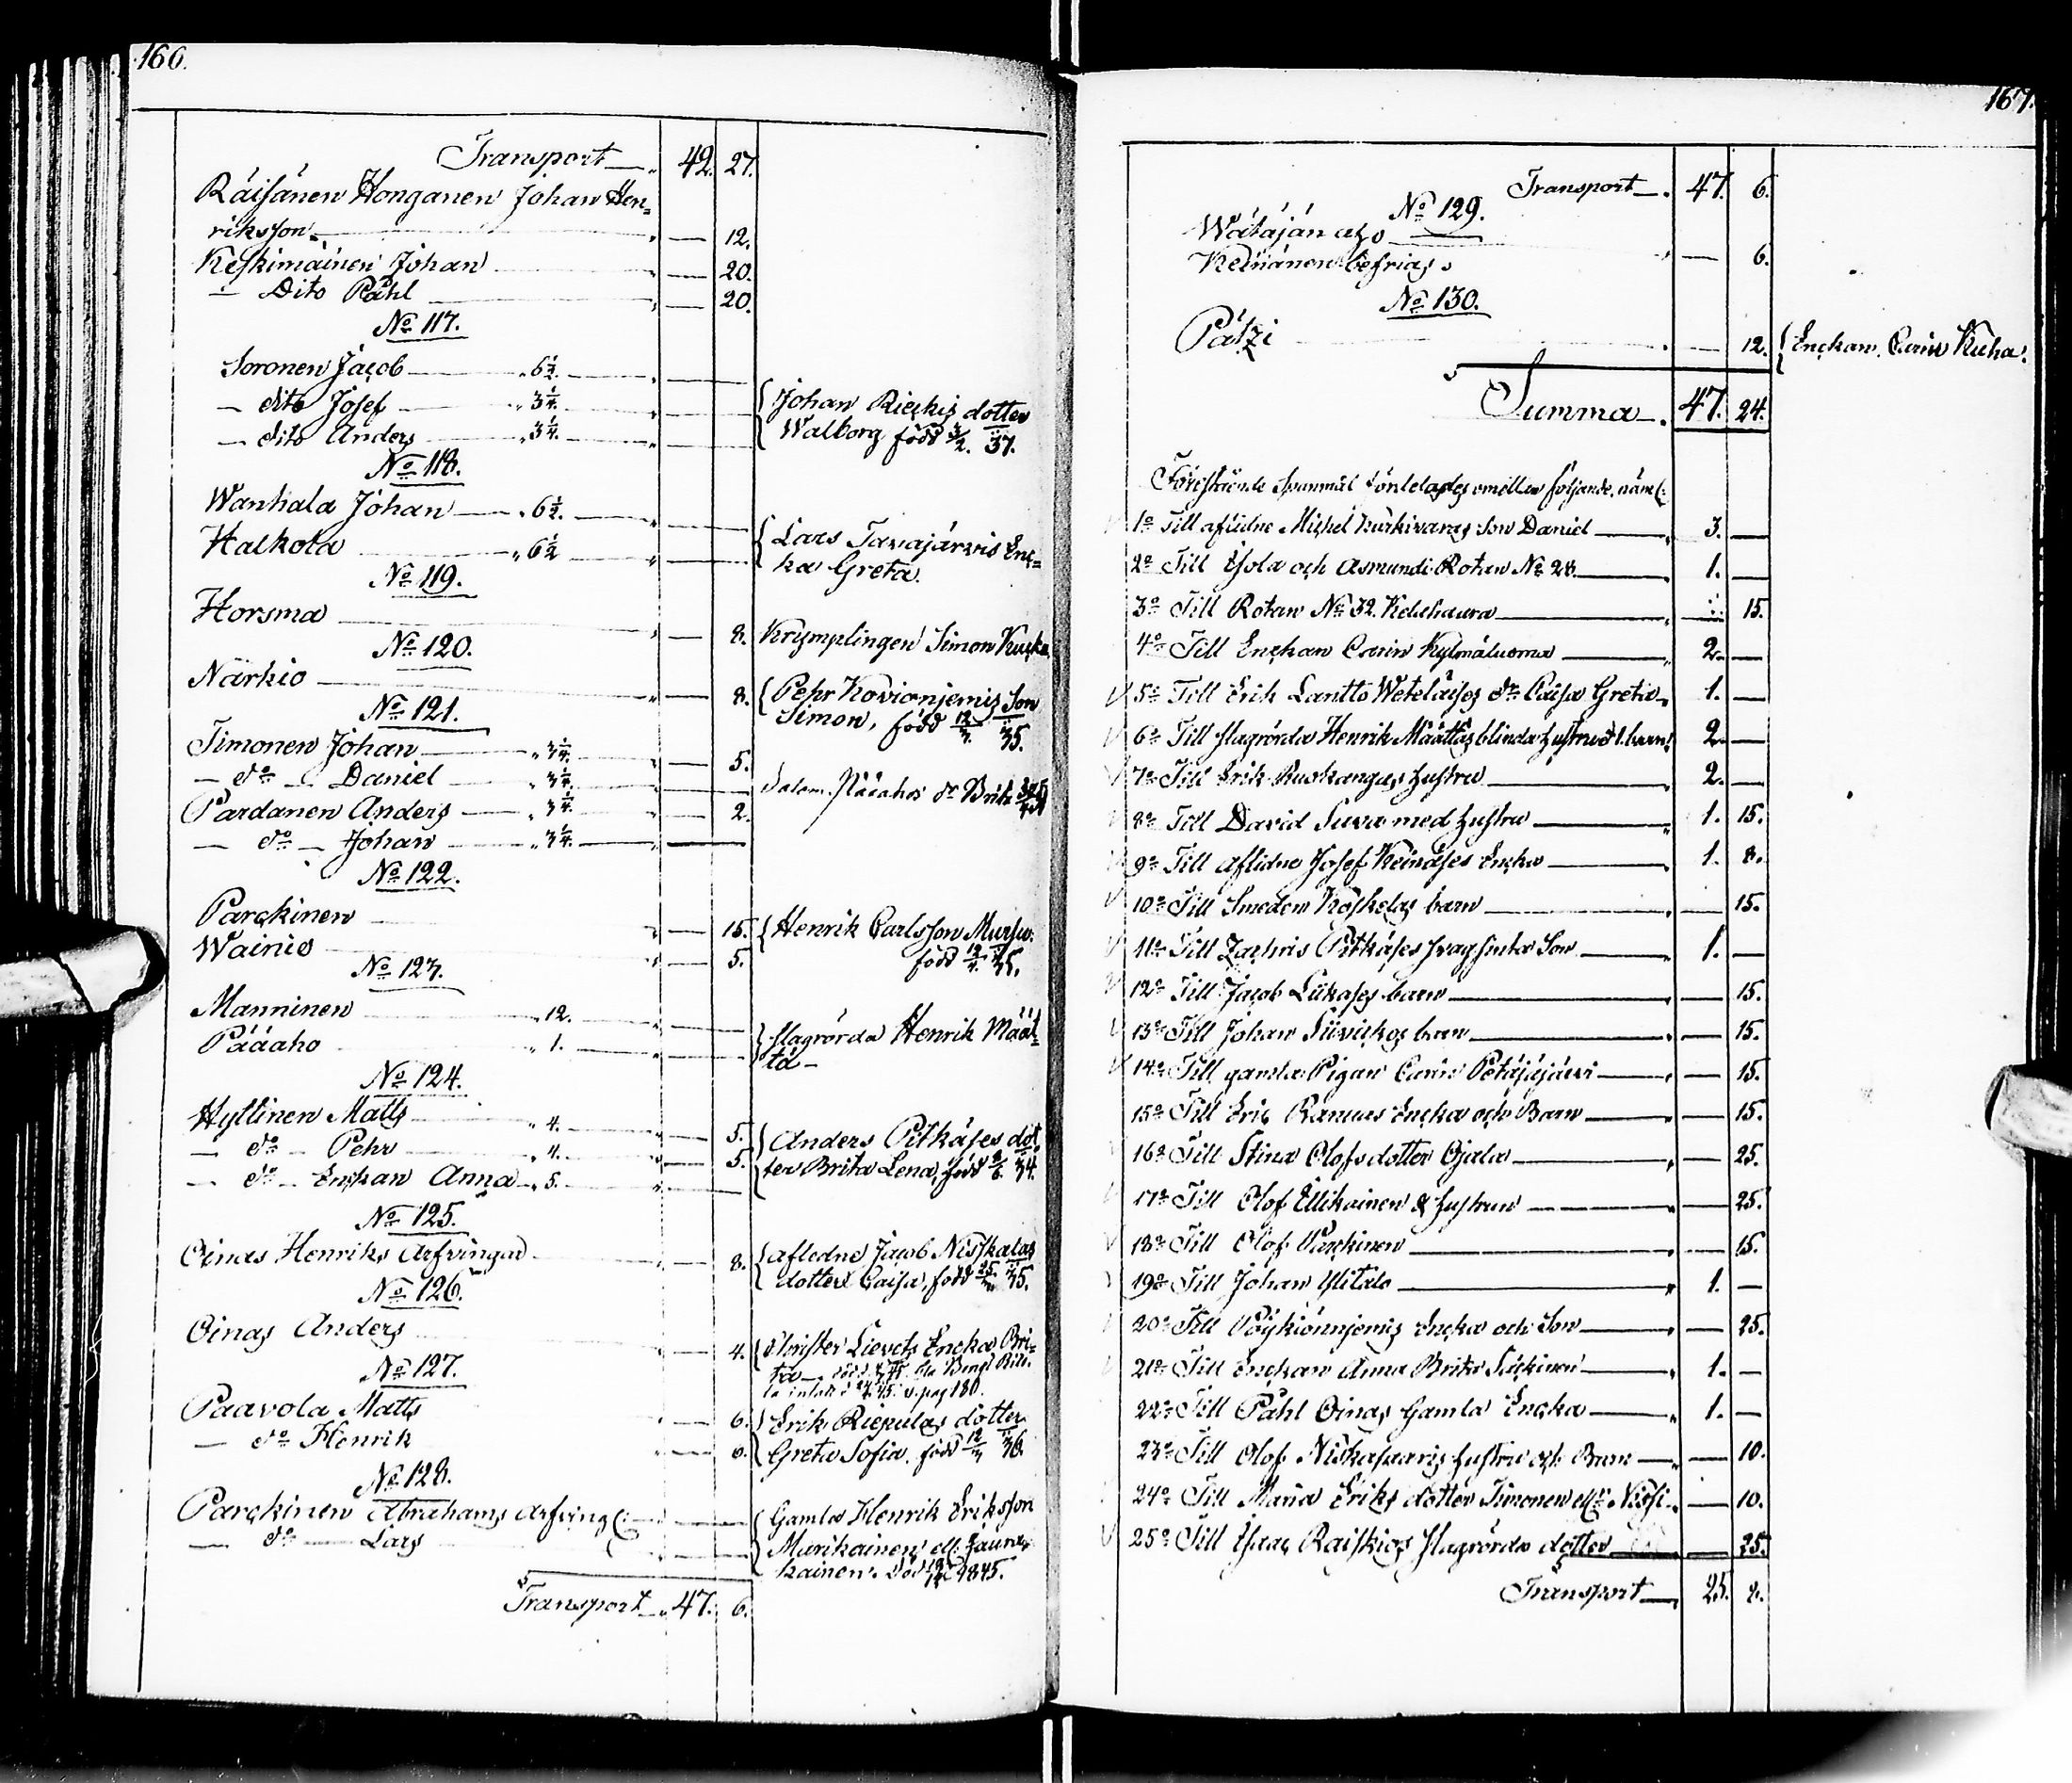 166.
Transport 42. 27.
Räisänen Honganen Johan Hen=
riksson 12.
Keskimäinen Johan 20.
— Dito Påhl 20.
No 117.
Soronen Jacob 6½.
— dito Josef 3¼.
— dito Anders 3¼.
{Johan Rieckis dotter
Walborg född 3/2. 37.
No 118.
Wanhala Johan 6½.
Halkola 6½
{Lars Tavajärvis Enc=
ka Greta.
No 119.
Horsma 8. Krymplingen Simon
No 120.
Närkio 8. {Pehr Kovionjemis Son
Simon, född 35.
No 121.
Timonen Johan 3¼. 5.
— do — Daniel 3¼.
Pardanen Anders 3¼. 2.
— do — Johan 3¼.
Pääahos dr Brita
No 122.
Parckinen 15. {Henrik Carlsson Mursu.
född 12/4. 35.
Wainio 5.
No 123.
Manninen 12.
Pääaho 1.
{slagrörda Henrik Määt=
tä —
No 124.
Hyttinen Matts 4. 5.
— do — Pehr 4. 5.
— do — Enckan Anna 5.
{Anders Pitkäses dot
ter Brita Lena, född 34.
No 125.
Oinas Henriks Arfvingar 8. {afledne Jacob Niskalas
dotter Caisa, född 35.
No 126.
Oinas Anders 4. {Christer Lievets Encka Bri=
ta —
pag 180.
No 127.
Paavola Matts 6.
— do Henrik 6.
{Erik Riepulas dotter
Greta Sofia. född 36.
No 128.
Parckinen Abrahams Arfving(:
— do — Lars
{Gamla Henrik Eriksson
Murikainen ell. Laura=
kainen. Död 1845.
Transport 47. 6.
167.
Transport 47. 6.
No 129.
Wätäjän
Keinänen befrias 6.
No 130.
Pätzi 12. {Enckan. Carin Kuha.
Summa 47. 24.
Föreskrifne Spannmål fördelades emellan följande, näml(:
1o Till aflidne Michel Kurkivaras Son Daniel 3. —
2o Till Ysola och Asmundi Rotan No 28. 1. —
3o Till Rotan No 32. 15.
4o Till Enckan Carin Kylmäluoma 2. —
5o Till Erik Lantto Weteläises dr Caisa Greta 1. —
6o Till slagrörda Henrik Määttäs blinda hustru o 1. barn 2. —
7o Till Erik Ruokangas hustru 2. —
8o Till David Suva med hustru 1. 15.
9o Till aflidne Josef Keinäses Encka 1. 8.
10o Till Smeden Koskelas barn 15.
11o Till Zachris Pitkäses svagsinta Son 1. —
12o Till Jacob Liikases barn 15.
13o Till Johan Siivickos barn 15.
14o Till gamla Pigan Carin Petäjäjärvi 15.
15o Till Eric Ranuas Encka och Barn 15.
16o Till Stina Olofsdotter Ojala 25.
17o Till Olof Ellikainen & hustru 25.
18o Till Olof Parckinen 15.
19o Till Johan Ylitalo 1. —
20o Till Pöykiönnjemis Encka och Son 25.
21o Till Enckan Anna Brita 1. —
22o Till Påhl Oinas Gamla Encka 1. —
23o Till Olof Niskasaaris hustru och Barn 10.
24o Till Maria Eriks dotter Timonen ell: Nissi 10.
25o Till Isaac Raiskios slagrörda dotter 25.
Transport 25. 8.